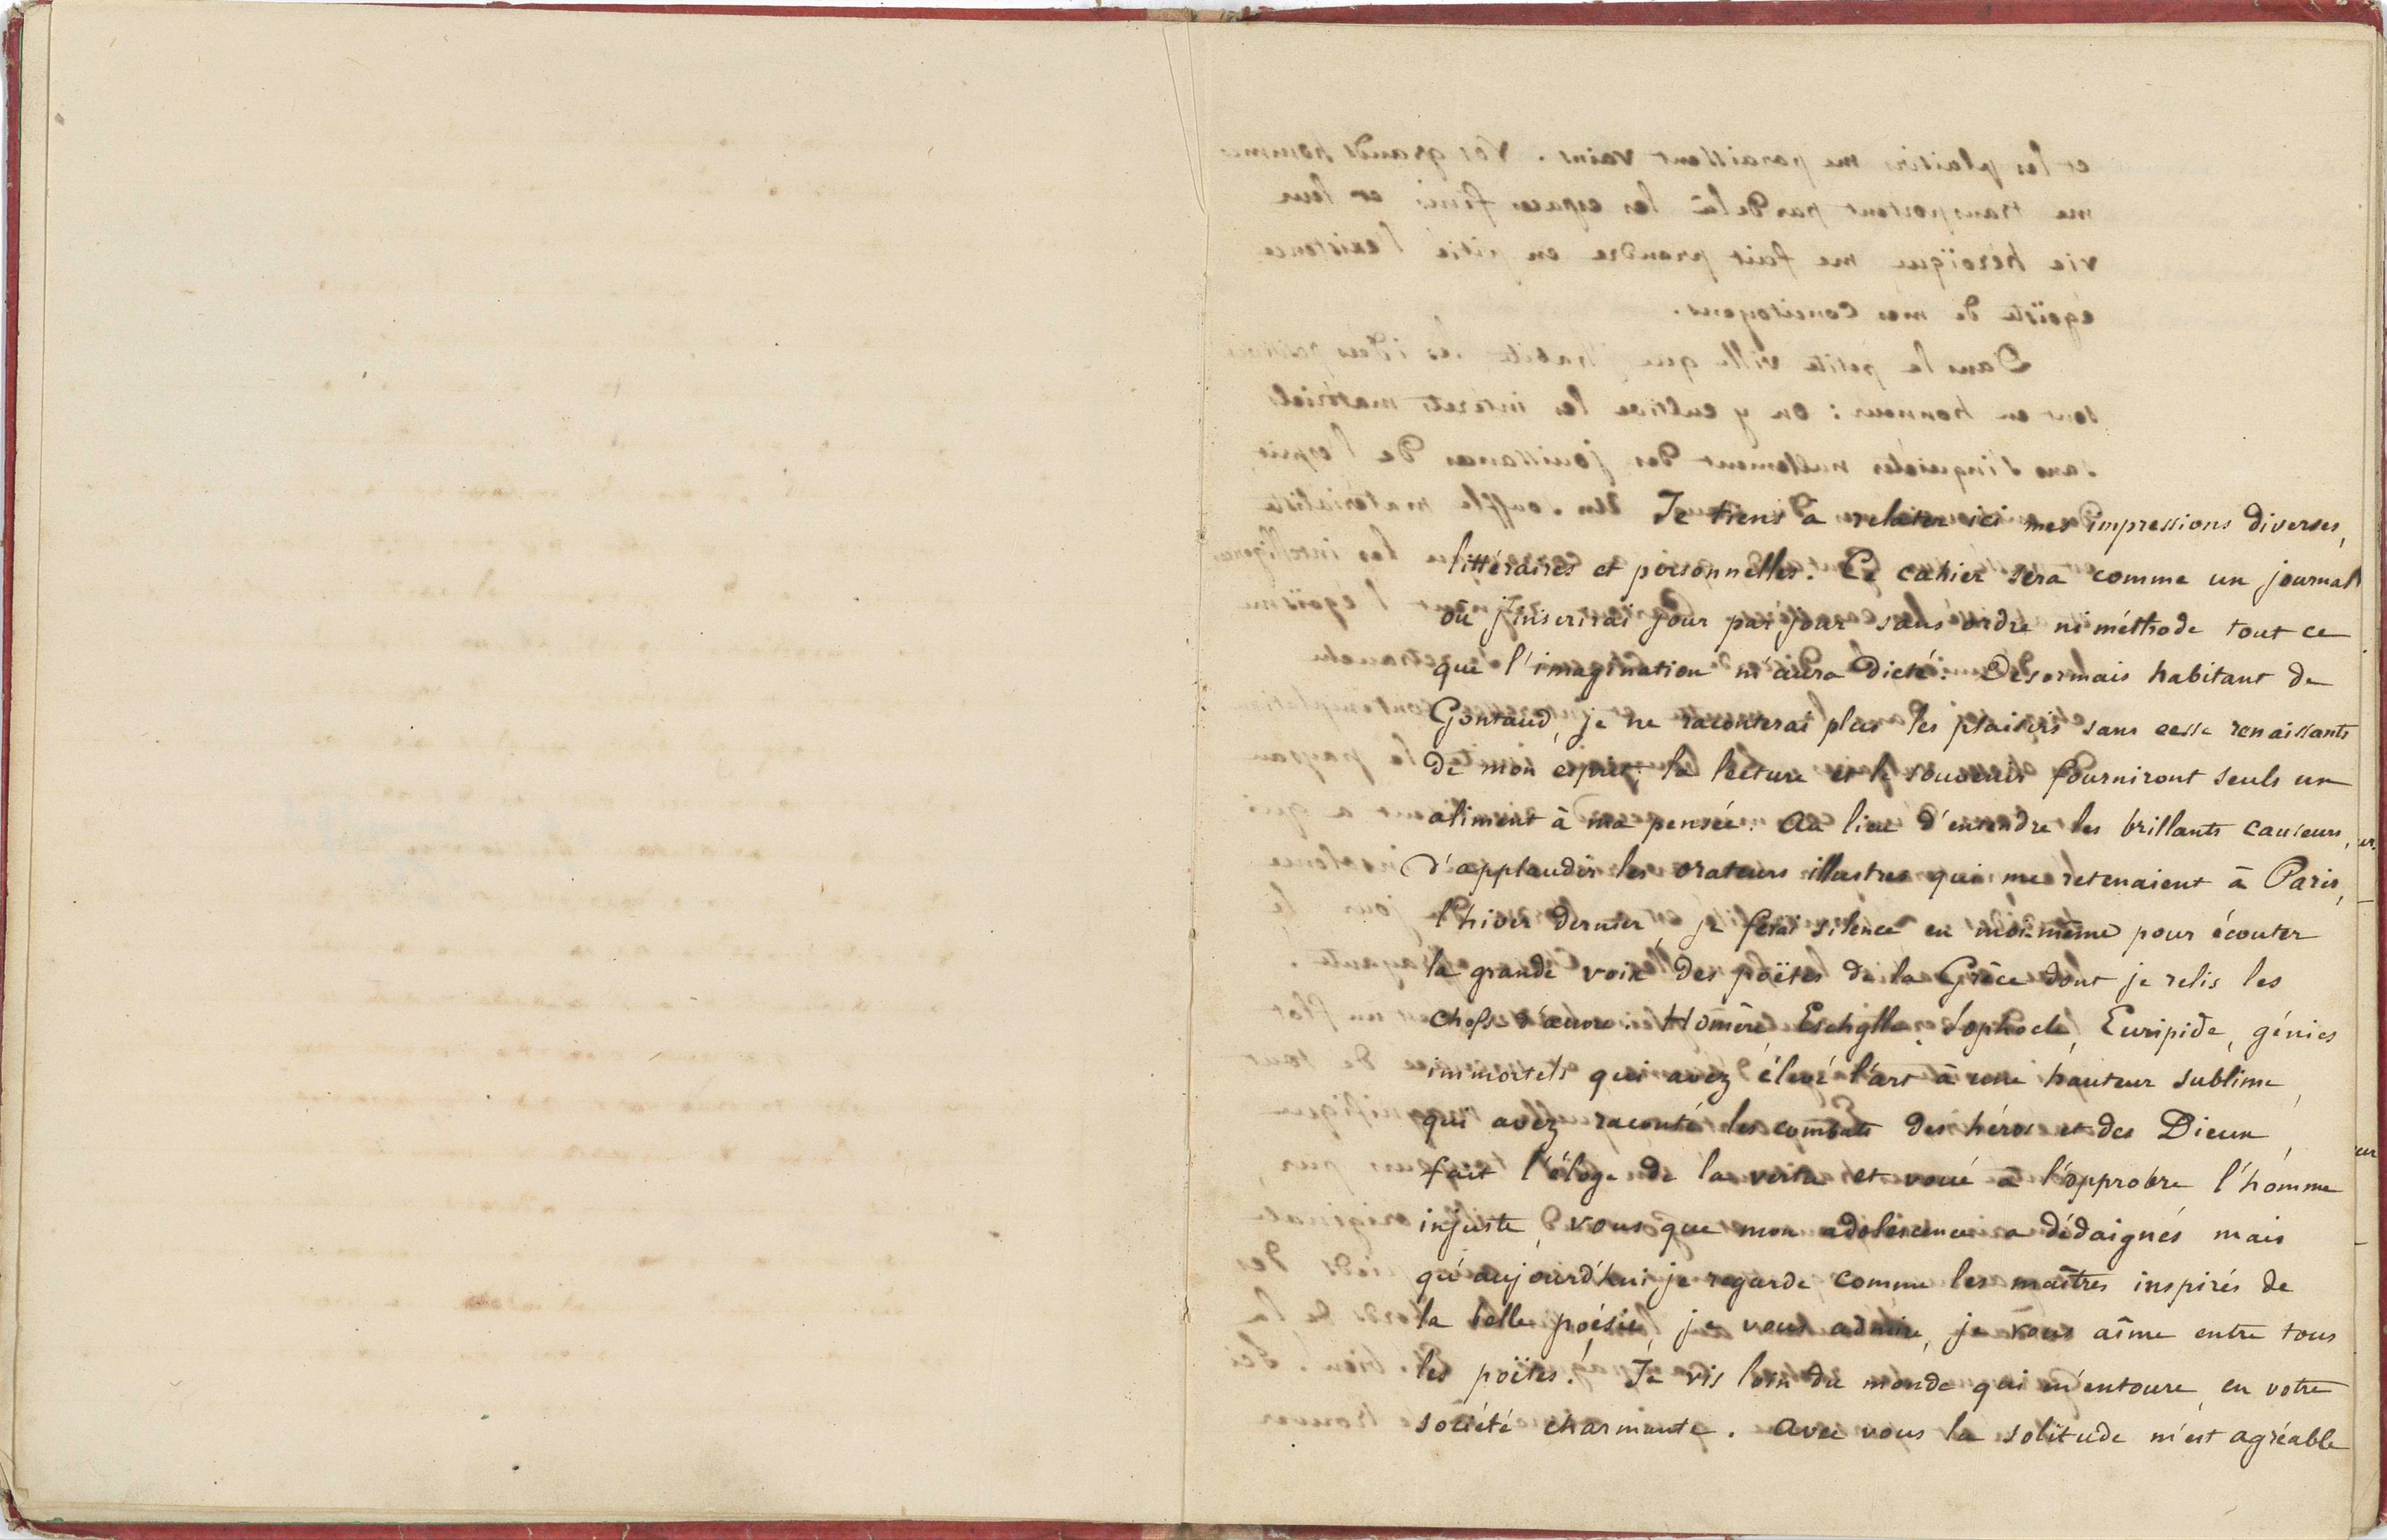 Je tiens à relater ici mes impressions diverses,
littéraires et personnelles. Ce cahier sera comme un journal
où j'inscrirai jour par jour sans ordre ni méthode tout ce
que l'imagination m'aura dicté. Désormais habitant de
Gontaud, je ne raconterai plus les plaisirs sans cesse renaissants
de mon esprit: la lecture et le souvenir fourniront seuls un
aliment à ma pensée. Au lieu d'entendre les brillants causeurs,
d'applaudir les orateurs illustres qui me retenaient à Paris,
l'hiver dernier, je ferai silence en moi-même pour écouter
la grande voix des poëtes de la Grèce dont je relis les
chefs d'œuvre. Homère, Eschylle, Sophocle, Euripide, génies
immortels qui avez élevé l'art à une hauteur sublime,
qui avez raconté les combats des héros et des Dieux,
fait l'éloge de la vertu et voué à l'opprobre l'homme
injuste, vous que mon adolescence a dédaignés mais
qu'aujourd'hui je regarde comme les maîtres inspirés de
la belle poésie, je vous admire, je vous aime entre tous
les poëtes! Je vis loin du monde qui m'entoure, en votre
société charmante. Avec vous la solitude m'est agréable